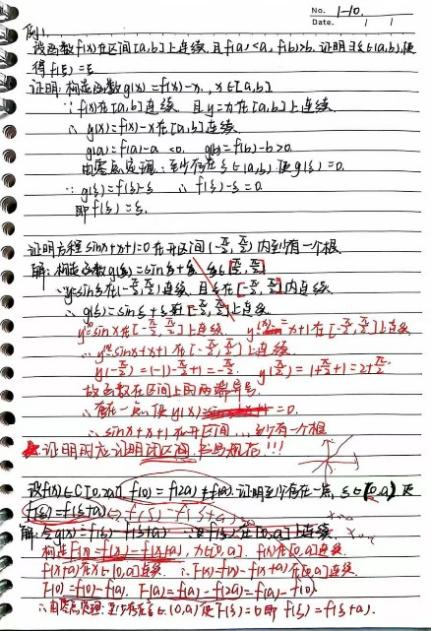 No. 1-10.
Date. / /
例1.
设函数f(x)在区间[a,b]上连续,且f(a)<a, f(b)>b. 证明∃ξ∈(a,b),使
得f(ξ)=ξ
证明: 构造函数g(x)=f(x)-x, x∈[a,b]
∵f(x)在[a,b]连续 且y=x在[a,b]上连续
∴g(x)=f(x)-x在[a,b]连续
g(a)=f(a)-a<0. g(b)=f(b)-b>0
由零点定理:至少存在ξ∈(a,b) 使g(ξ)=0.
∵g(ξ)=f(ξ)-ξ ∴f(ξ)-ξ=0
即f(ξ)=ξ.
证明方程sinx+x+1=0在开区间(-π/2,π/2)内至少有一个根
解: 构造函数g(ξ)=sinξ+ξ, [-π/2,π/2]
∵y=sinξ在(-π/2,π/2)连续 且ξ在[-π/2,π/2]内连续
∴g(ξ)=sinξ+ξ在[-π/2,π/2]上连续
y=sinx在[-π/2,π/2]上连续 y=x+1在[-π/2,π/2]上连续
∴y=sinx+x+1在[-π/2,π/2]上连续
y(-π/2)=(-1)-π/2+1=-π/2. y(π/2)=1+π/2+1=2+π/2
故函数在区间上的两端异号
∴存在一点 使y(x)=0.
∴sinx+x+1在开区间…至少有一个根
证明时应证明闭区间 书写规范!!!
设f(x)∈C[0,2a], f(0)=f(2a)≠f(a). 证明至少存在一点 ξ∈(0,a) 使
f(ξ)=f(ξ+a) f(ξ)-f(ξ+a)
解: 令g(x)=f(ξ)-f(ξ+a) 在[0,a]上连续
构造F(x)=f(x)-f(x+a), x∈[0,a]. f(x)在[0,a]连续
f(x+a)在x∈[0,a]连续 ∴F(x)=f(x)-f(x+a)在[0,a]连续
F(0)=f(0)-f(a). F(a)=f(a)-f(2a)=f(a)-f(0).
∴由零点定理:至少存在ξ∈(0,a)使F(ξ)=0即f(ξ)=f(ξ+a).